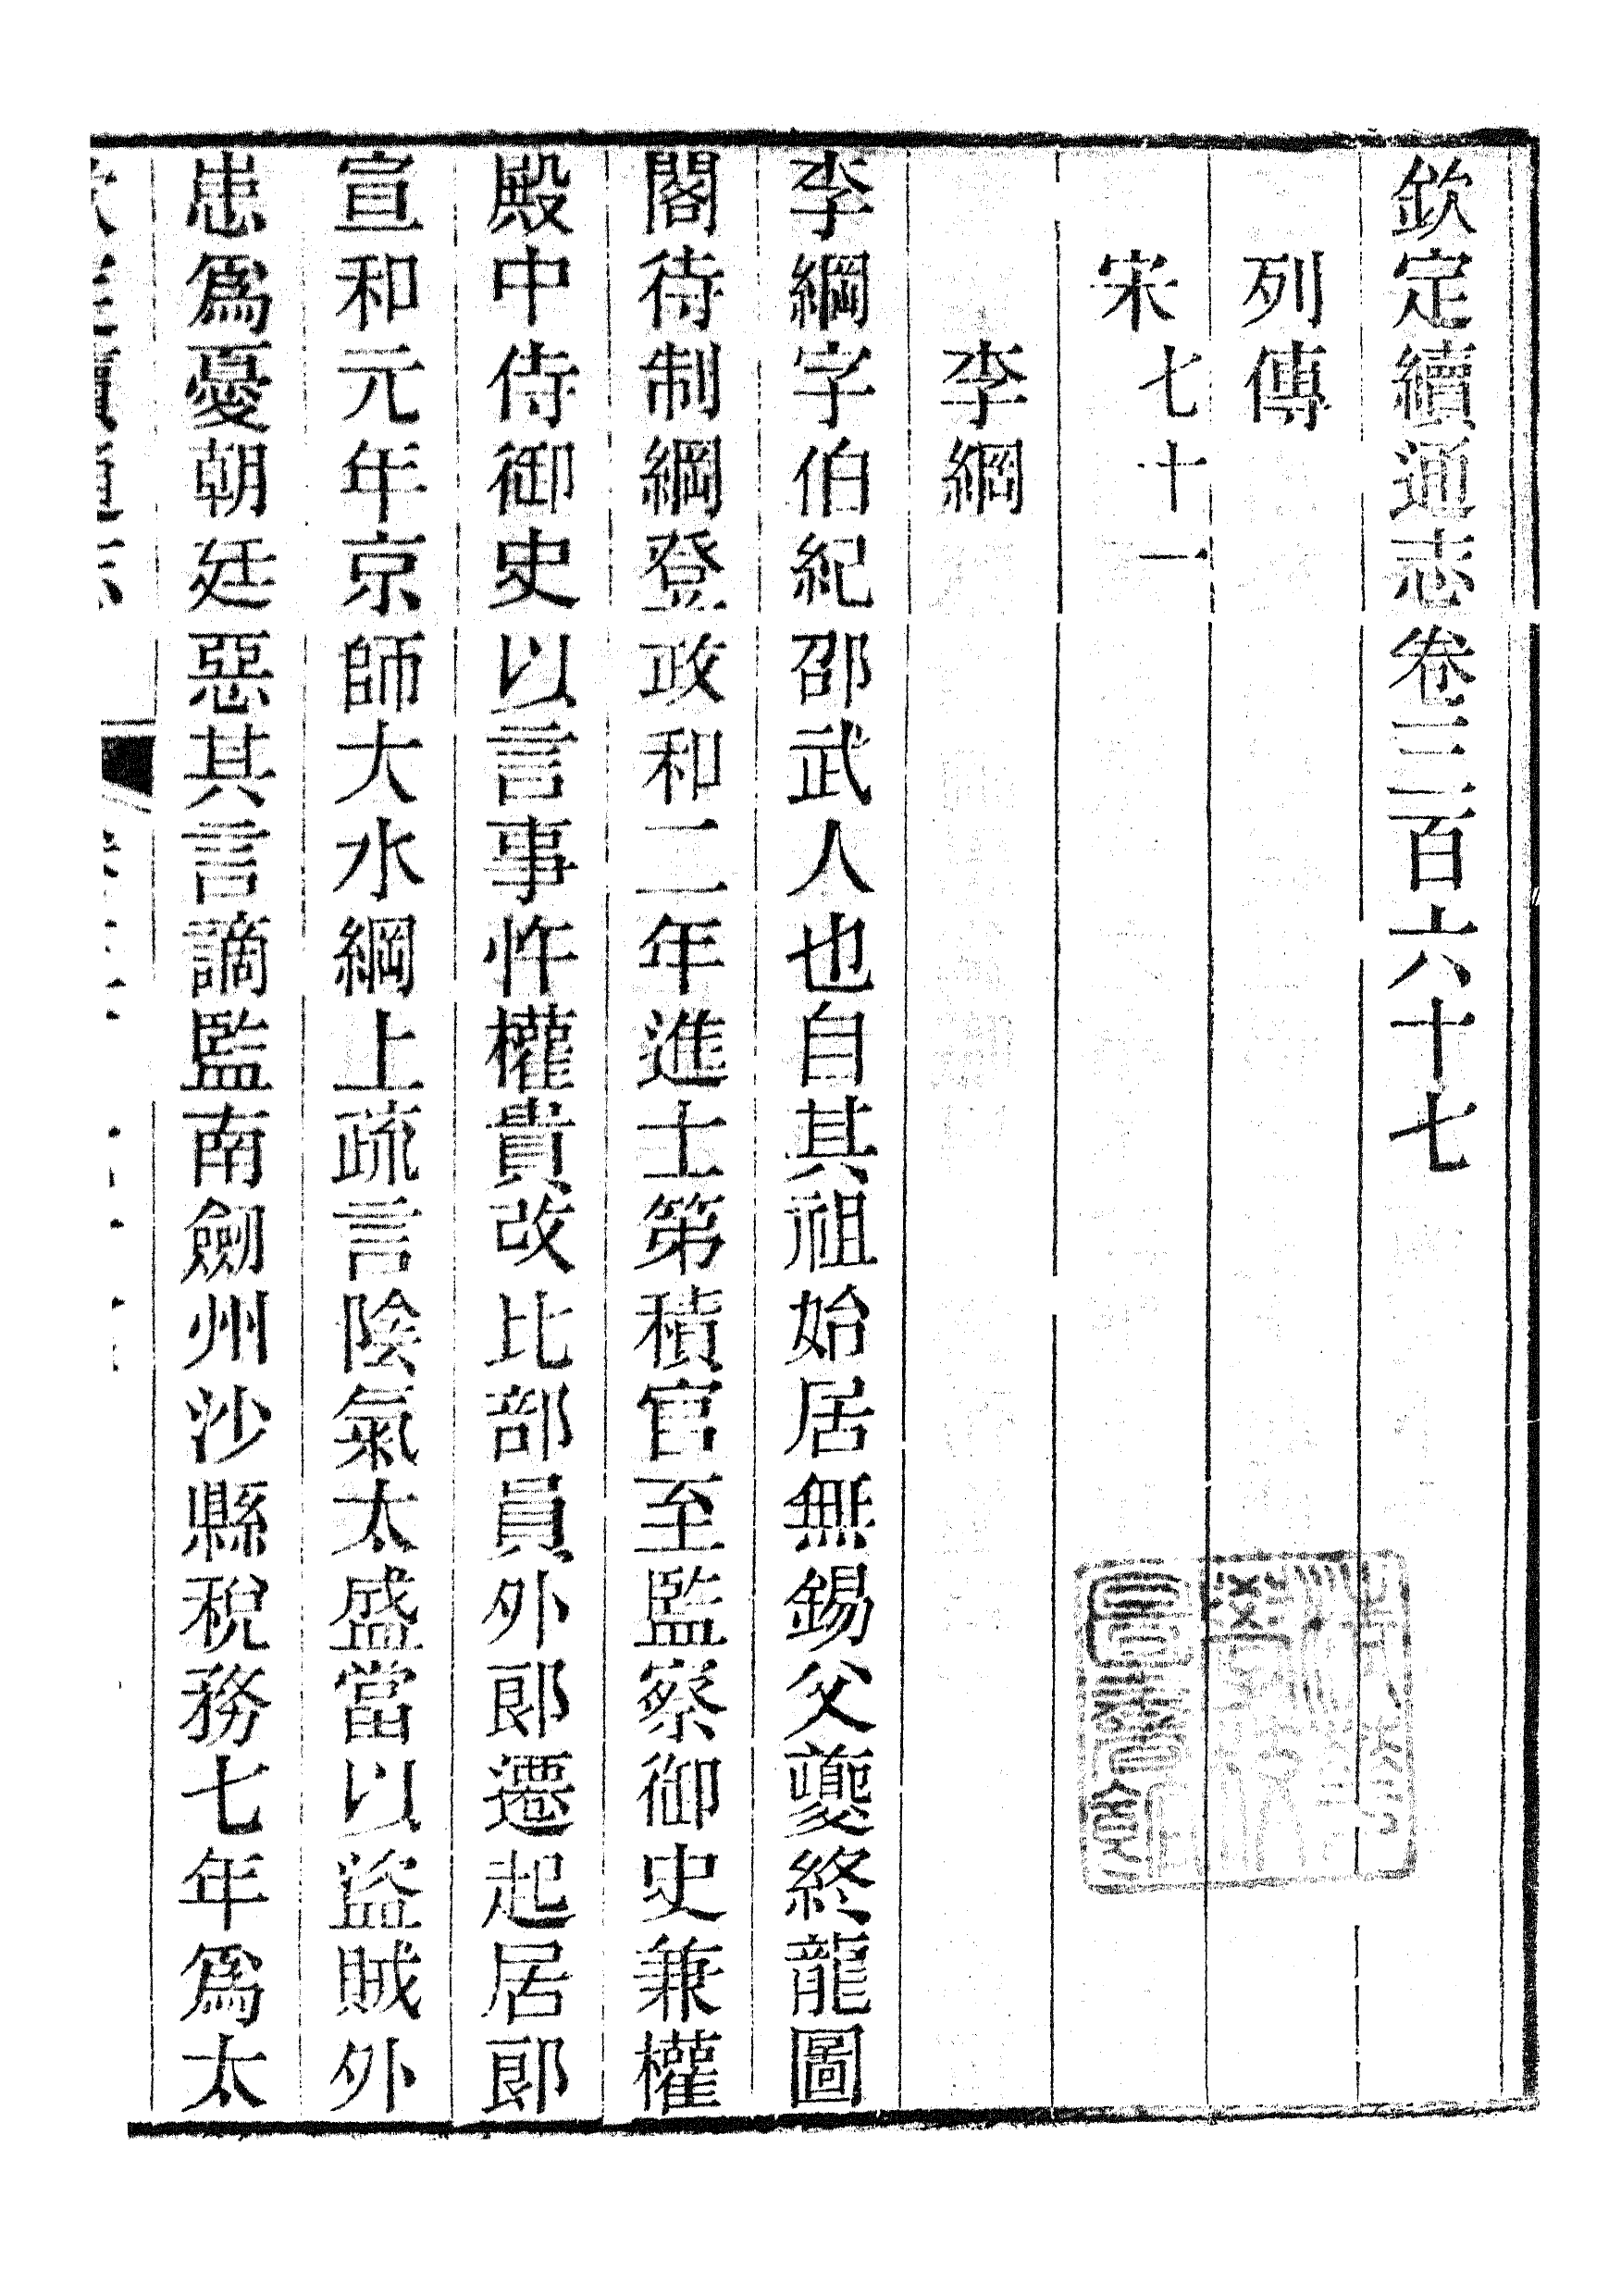 欽定續通志卷三百六十七
列傳
宋七十一
李綱
李綱字伯紀邵武人也自其祖始居無錫父夔終龍圖
閣待制綱登政和二年進士第積官至監察御史兼權
殿中侍御史以言事忤權貴改比部員外郎遷起居郎
宣和元年京師大水綱上疏言陰氣太盛當以盜賊外
患爲憂朝廷惡其言謫監南劍州沙縣稅務七年爲太